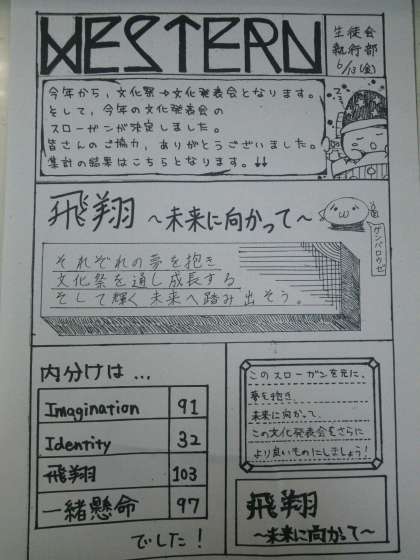 WESTERN
生徒会
執行部
6/13(金)
今年から,文化祭→文化発表会となります。
そして,今年の文化発表会の
スローガンが決定しました。
皆さんのご協力,ありがとうございました。
集計の結果はこちらとなります。↓↓
飛翔 ～未来に向かって～
ガンバロウゼ
それぞれの夢を抱き
文化祭を通し成長する
そして輝く未来へ踏み出そう。
内分けは…
Imagination 91
Identity 32
飛翔 103
一緒懸命 97
でした!
このスローガンを元に,
夢を抱き
未来に向かって,
この文化発表会をさらに
より良いものにしましょう!
飛翔
～未来に向かって～